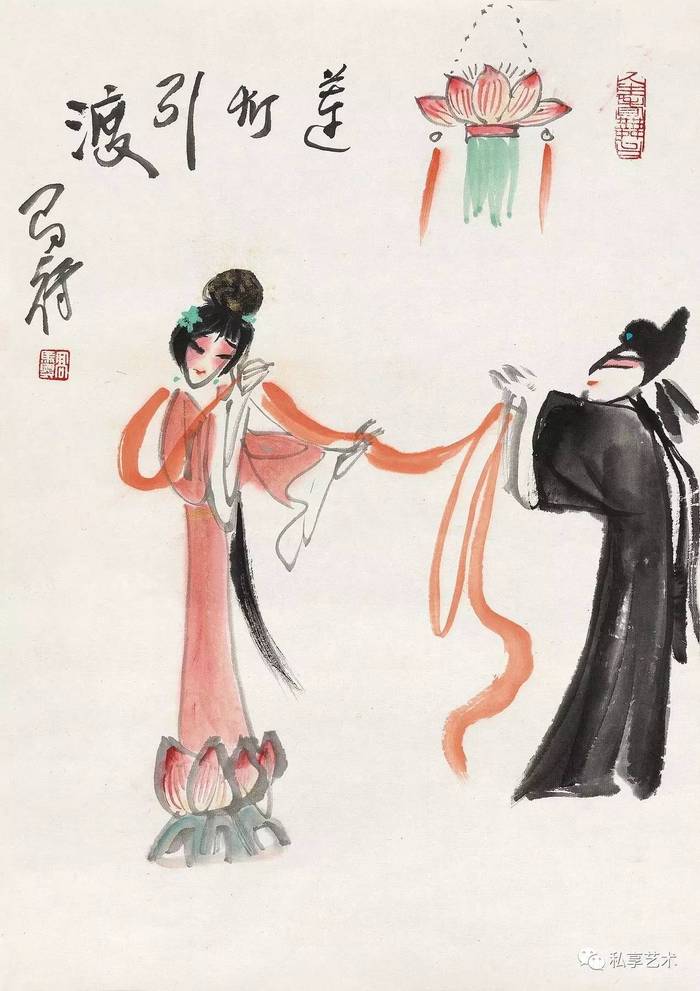 莲灯引渡
马得
私享艺术